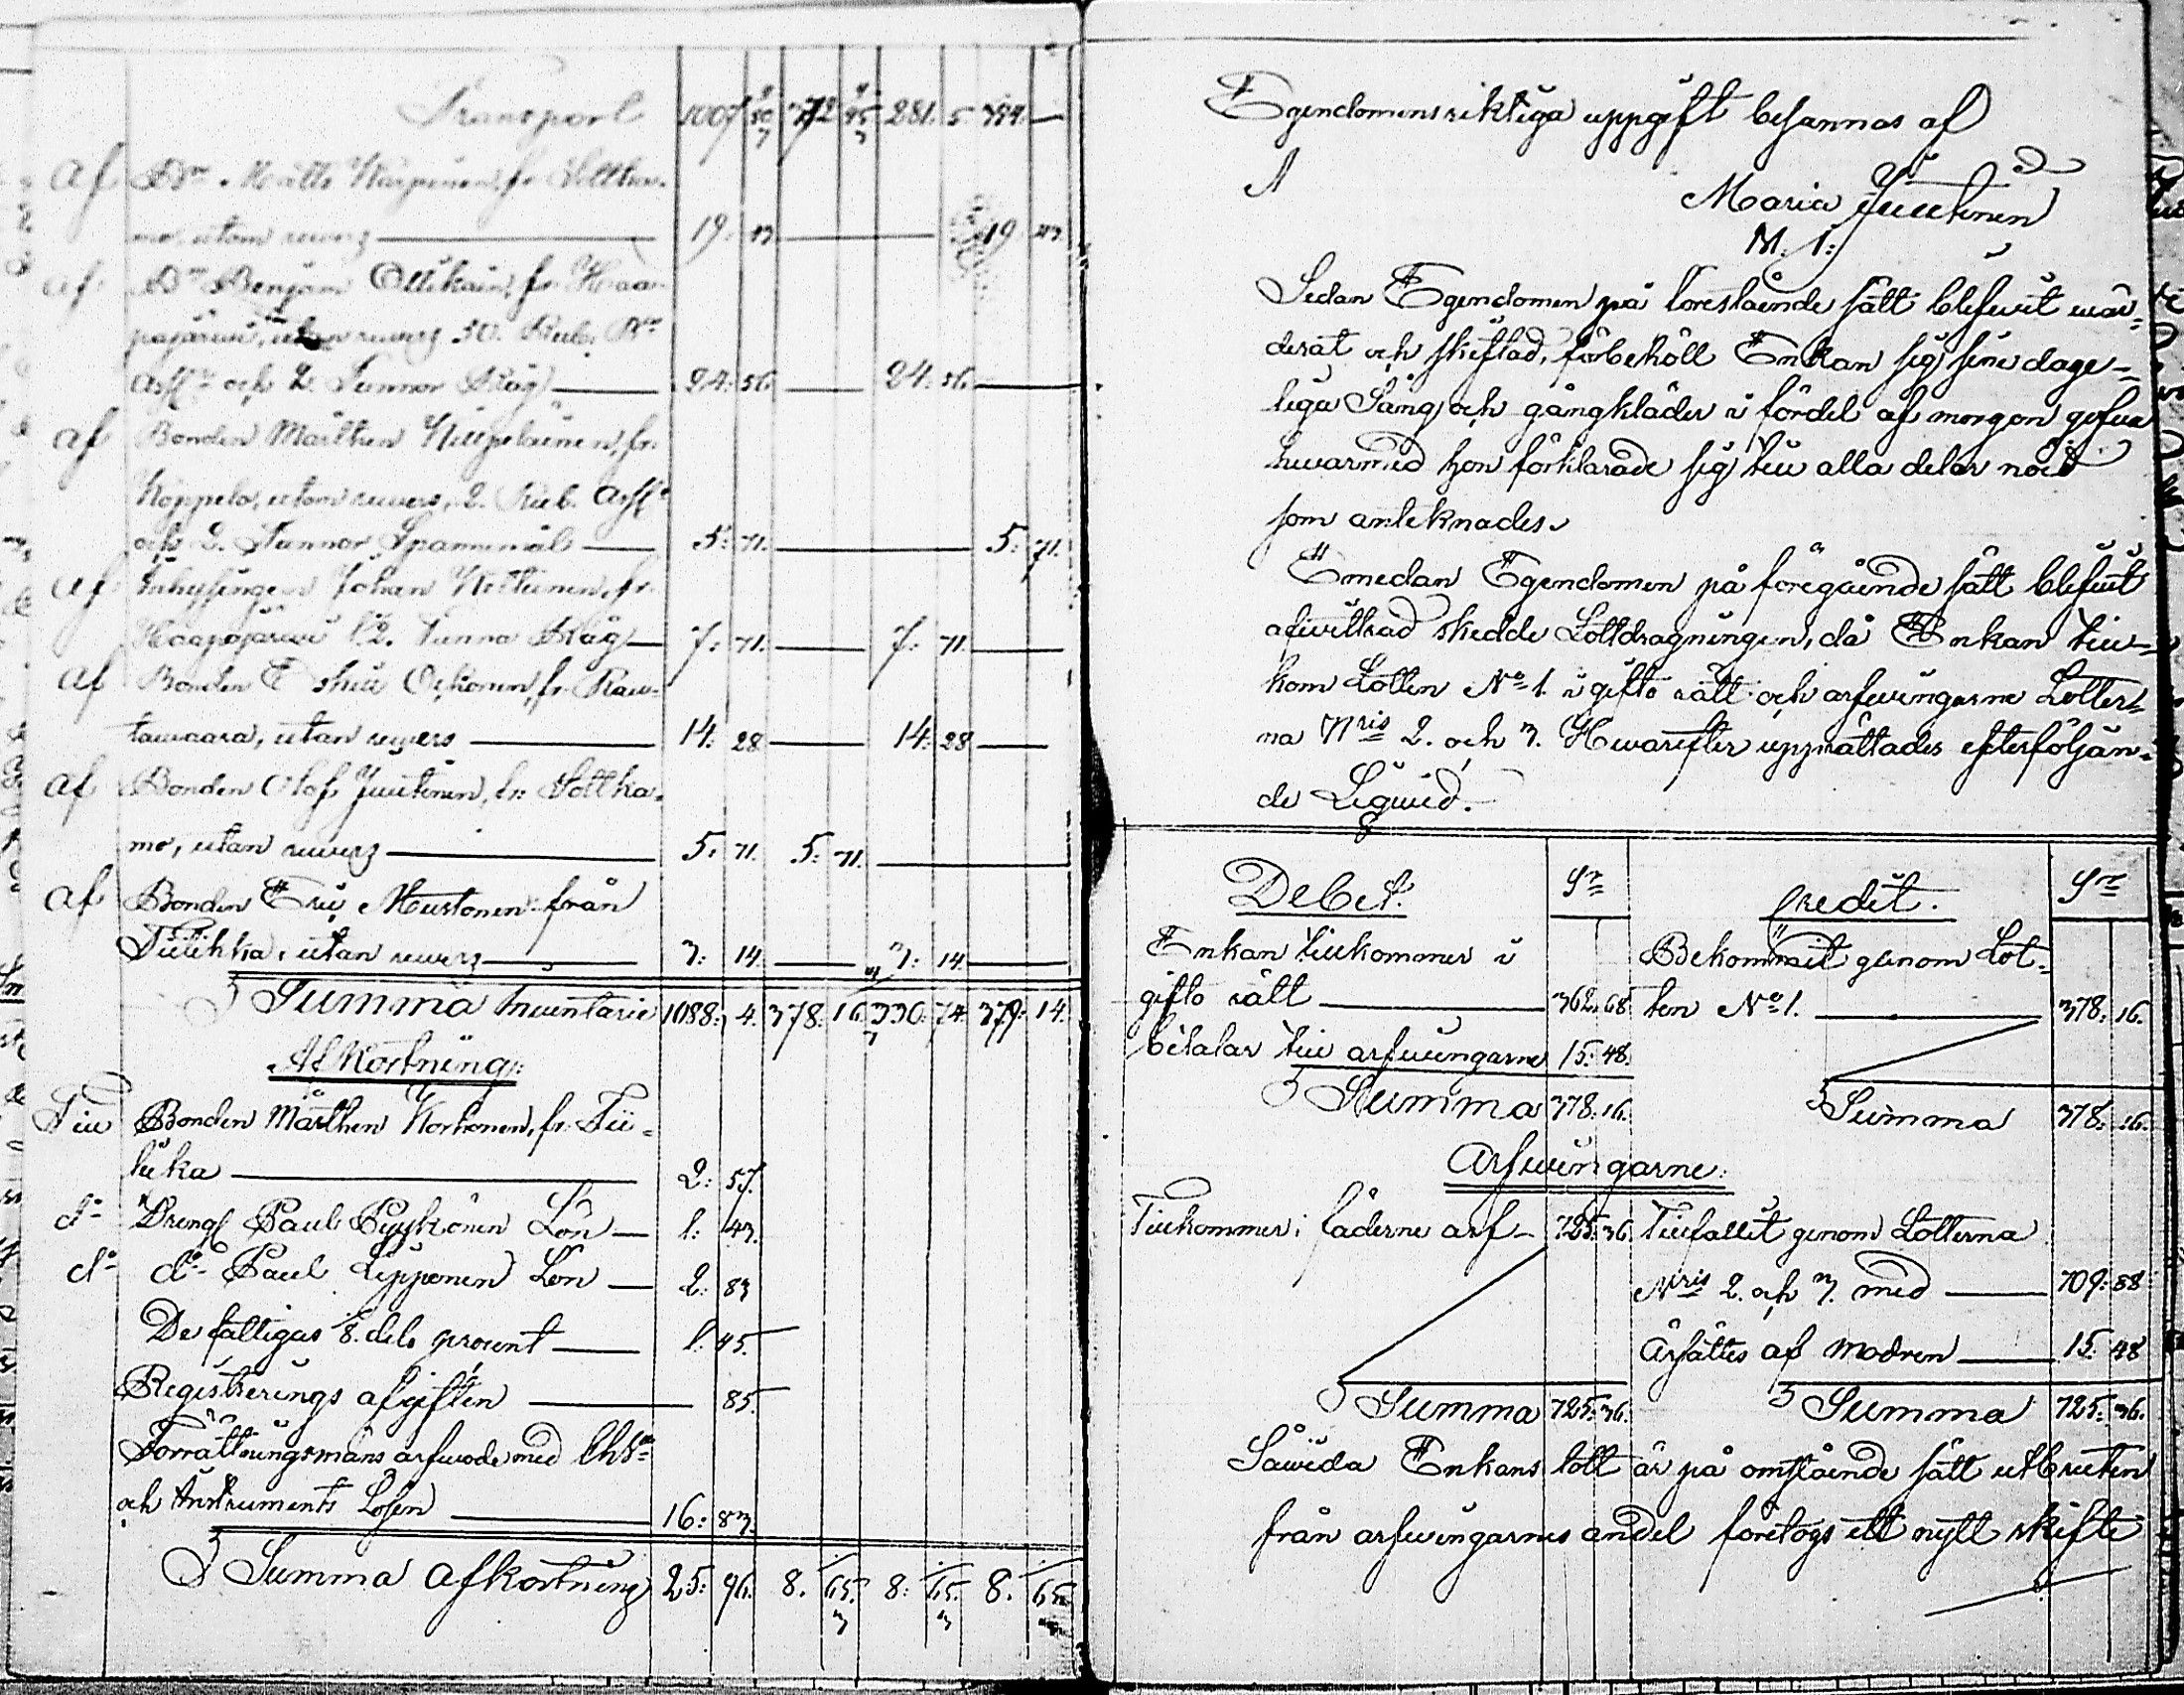 Transport 1007 50 372 45 281. 5 354. —
af Dn Matts Karpinen, fr Sottka-
mo, utom revers — 19. 43 — 19. 43
af Dn Benjam Ollikain, fr Haa-
pajärvi, utan revers 30. Rub. Bco
Assr och 2. Tunnor Råg — 24: 56. — 24: 56. —
af Bonden Mårthen Niepelainen, fr.
Koppelo, utom revers, 2. Rub. Assr
och 2. Tunnor Spannemål — 5: 71. — 5: 71.
af Inhysingen Johan Kettunen, fr.
Haapajärvi 1/2. Tunna Råg — 7: 71. — 7: 71. —
af Bonden Eskil Oikonen, fr Rau-
tawaara, utan revers — 14: 28 — 14: 28 —
af Bonden Olof Juutinen, fr: Sottka-
mo, utan revers — 5: 71. 5: 71. —
af Bonden Eric Mustonen från
Tiilikka, utan revers — 3: 14. — 3: 14. —
Summa Inventarie 1088: 4. 378: 16. 330: 74. 379: 14.
Afkortning:
Till Bonden Mårthen Korhonen, fr: Tii-
likka — 2: 57.
do Dreng Paul Pyykönen Lön — 1: 43.
do do Paul Lipponen Lön — 2: 83
De fattigas 8. dels procent — 1: 45.
Registrerings afgiften — 85.
Förrättningsmans arfwode med Chtæ
och Instruments Lösen — 16: 83.
Summa Afkortning 25: 96. 8. 65. 8: 65. 8. 65.
Egendomens riktiga uppgift besannas af
Maria Juutinen
M. I:
Sedan Egendomen på förestående sätt blifwit wär-
derat och skiftad, förbehöll Enkan sig sine dage-
liga Säng och gångkläder i fördel af morgon gofwa
hwarmed hon förklarade sig till alla delar nöid
som anteknades.
Emedan Egendomen på föregående sätt blifwit
afwittrad skedde Lottdragningen, då Enkan till-
kom Lotten No 1. i gifto rätt och arfwingarne Lotter-
na Nris 2. och 3. Hwarefter upprättades efterföljan-
de Liqwid.
Debet. Sr Credit. Sr
Enkan tillkommer i Bekommit genom Lot-
gifto rätt — 362. 68. ten No 1. — 378. 16.
betalar till arfwingarne 15: 48.
Summa 378: 16. Summa 378: 16.
Arfwingarne:
Tillkommer i fäderne arf — 725: 36. Tillfallit genom Lotterna
Nris 2. och 3. med — 709: 88.
Ersättes af modren — 15. 48
Summa 725: 36. Summa 725: 36.
Såwida Enkans lott är på omstående sätt utbruten
från arfwingarnes andel företogs ett nytt skifte